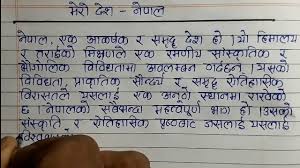 मेरो देश - नेपाल
नेपाल, एक आकर्षक र समृद्ध देश हो । यो हिमालय
र तराईको मिश्रणले एक रमणीय सांस्कृतिक र
भौगोलिक विविधतामा अवलम्बन गर्दछन् । यसको
विविधता, प्राकृतिक सौन्दर्य र समृद्ध ऐतिहासिक
विरासतले यसलाई एक अनुठो स्थानमा राखेको
छ । नेपालको सबैभन्दा महत्वपूर्ण भाग हो । उसको
संस्कृति र ऐतिहासिक पृष्ठभाट जसलाई यसलाई